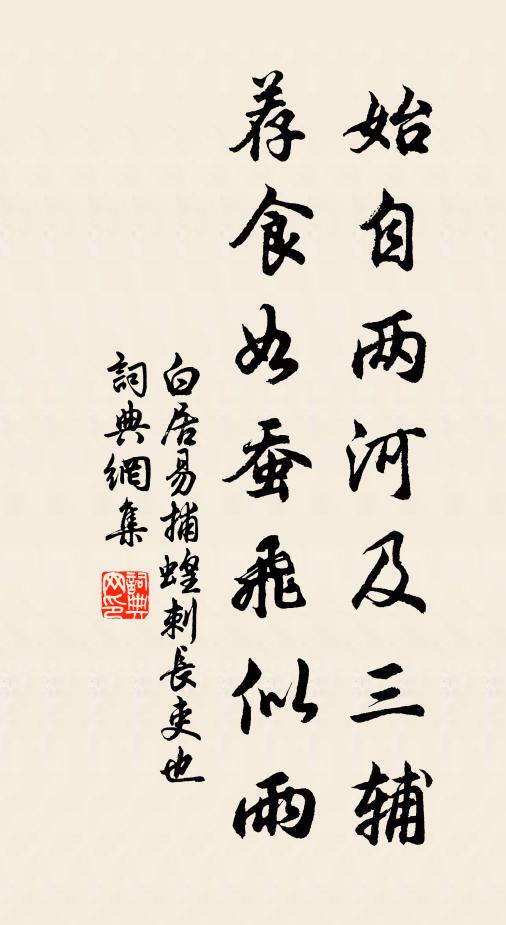 始自两河及三辅
荐食如蚕飛似雨
白居易捕蝗刺長吏也
詞典網集
詞典網印